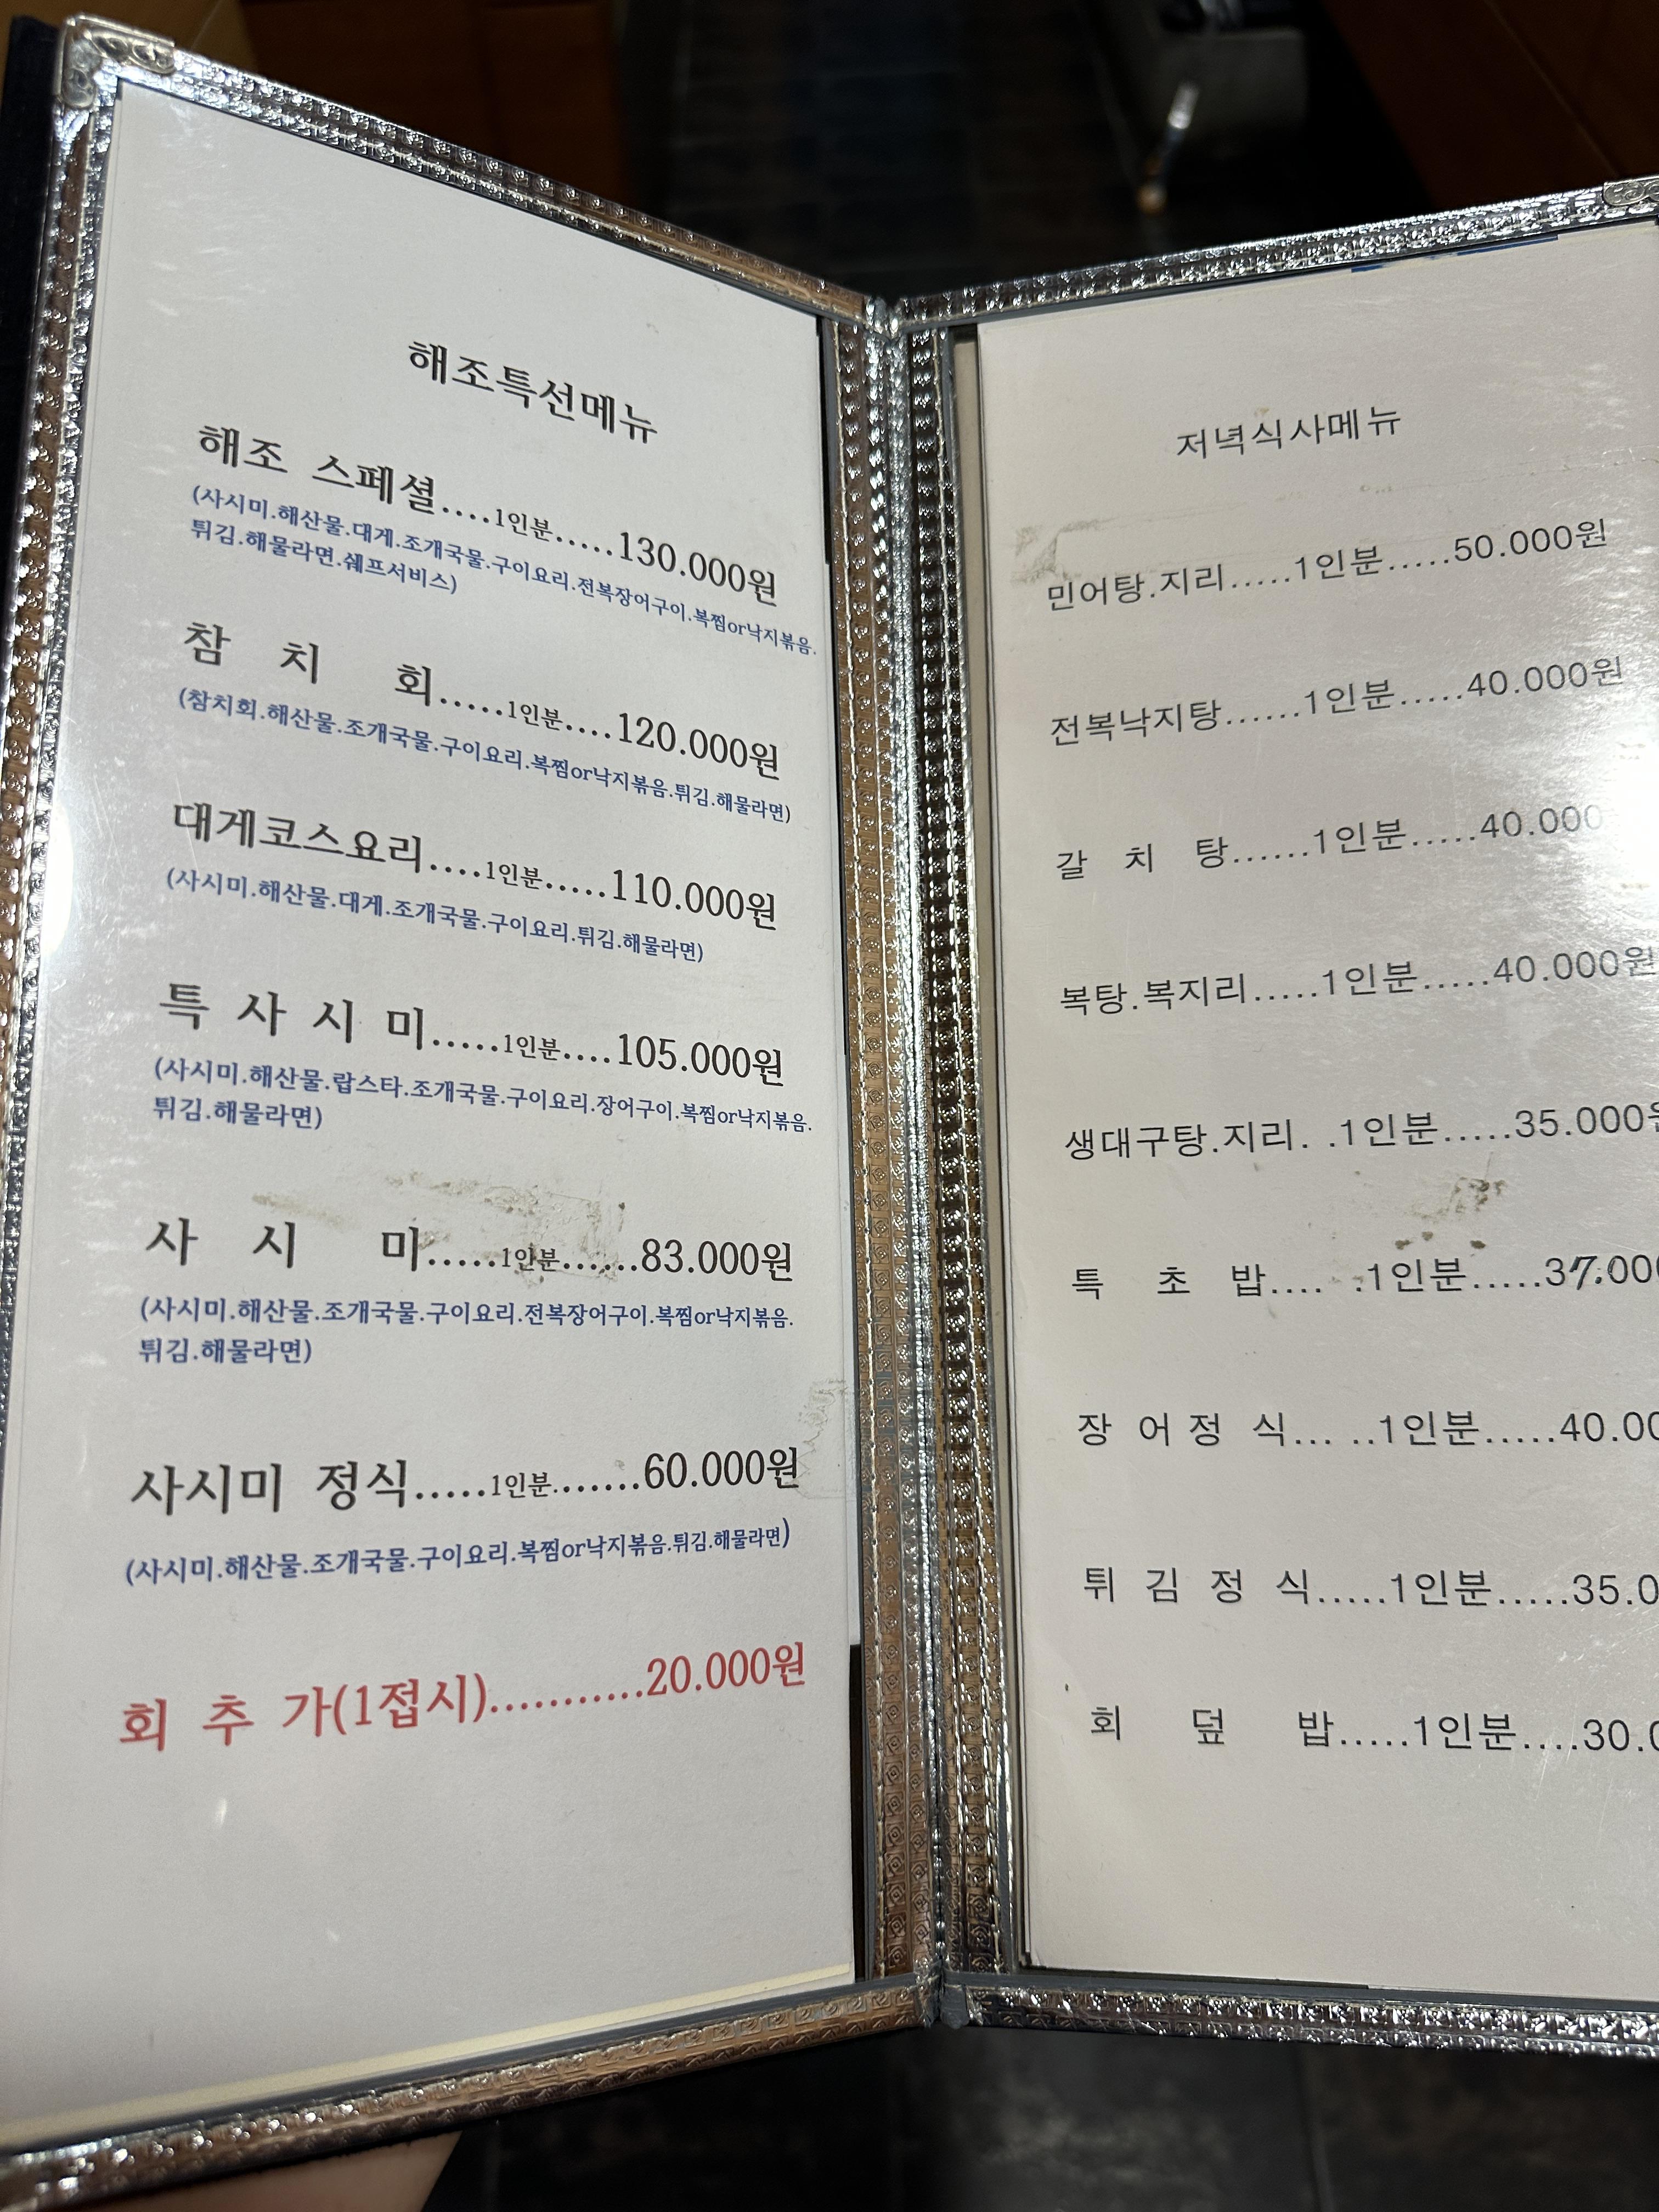 해조특선메뉴
해조 스페셜....1인분.....130.000원
(사시미.해산물.대게.조개국물.구이요리.전복장어구이.복찜or낙지볶음.
튀김.해물라면.쉐프서비스)
참 치 회.....1인분....120.000원
(참치회.해산물.조개국물.구이요리.복찜or낙지볶음.튀김.해물라면)
대게코스요리....1인분.....110.000원
(사시미.해산물.대게.조개국물.구이요리.튀김.해물라면)
특 사 시 미.....1인분....105.000원
(사시미.해산물.랍스타.조개국물.구이요리.장어구이.복찜or낙지볶음.
튀김.해물라면)
사 시 미.....1인분......83.000원
(사시미.해산물.조개국물.구이요리.전복장어구이.복찜or낙지볶음.
튀김.해물라면)
사시미 정식.....1인분.......60.000원
(사시미.해산물.조개국물.구이요리.복찜or낙지볶음.튀김.해물라면)
회 추 가(1접시)...........20.000원
저녁식사메뉴
민어탕.지리.....1인분.....50.000원
전복낙지탕......1인분.....40.000원
갈 치 탕......1인분.....40.000
복탕.복지리.....1인분.....40.000원
생대구탕.지리. .1인분.....35.000원
특 초 밥.... .1인분.....37.000
장 어 정 식... ..1인분.....40.00
튀 김 정 식.....1인분.....35.0
회 덮 밥.....1인분....30.0